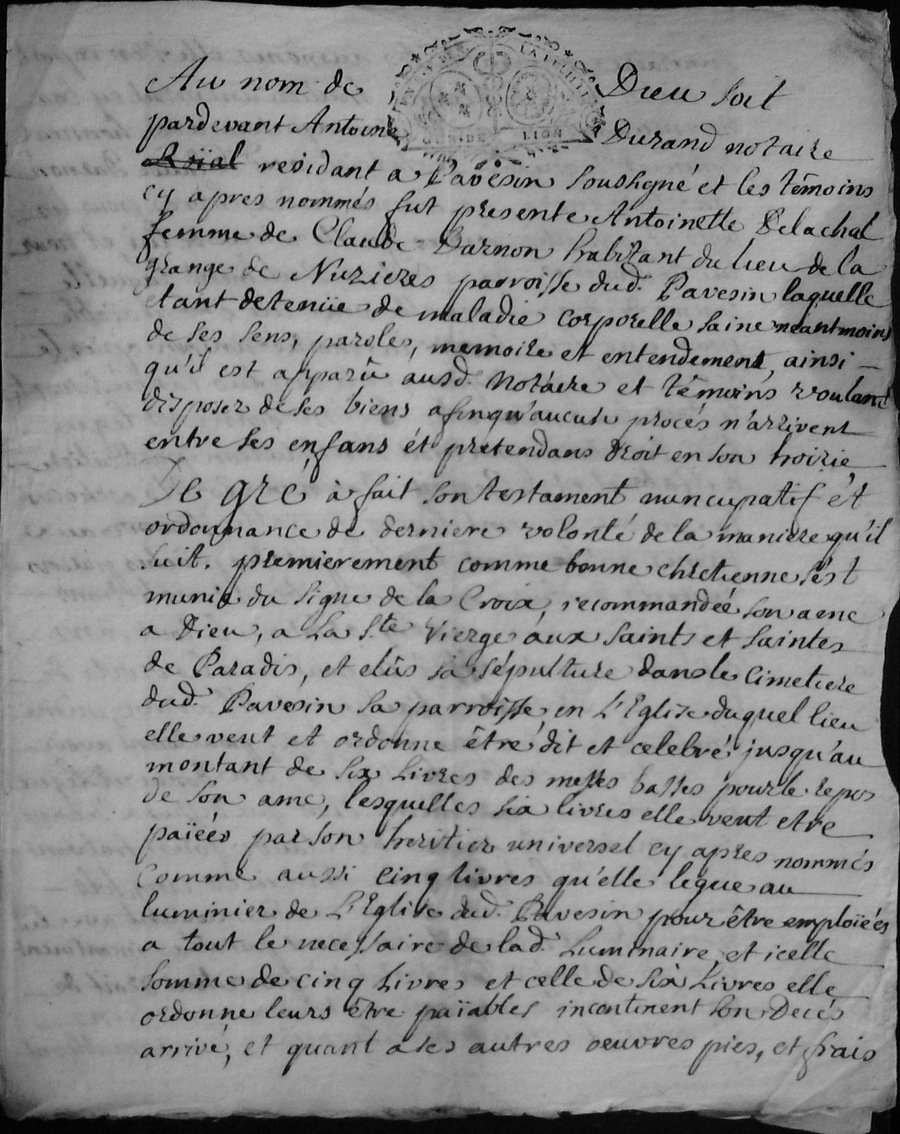 Au nom de Dieu soit
pardevant Antoine Durand notaire
Roïal residant a Pavesin soussigné et les têmoins
cy apres nommés fut presente Antoinette Delachal
femme de Claude Barnon habitant du lieu de la
grange de Nuzieres parroisse dud. Pavesin laquelle
etant detenüe de maladie corporelle saine néantmoins
de ses sens, parole, memoire et entendement, ainsi
qu'il est apparû ausd. notaire et têmoins voulant
disposer de ses biens afinqu'aucuns procés n'arrivent
entre ses enfans ét pretendans droit en son hoirie,
De gré à fait son testament nuncupatif ét
ordonnance de derniere volonté de la maniere qu'il
suit. premierement comme bonne chretienne s'est
munie du signe de la Croix, recommandée son ame
a Dieu, a La Ste Vierge aux saints et saintes
de Paradis, et elûs sa sépulture dans le cimetiere
dud. Pavesin sa parroisse en L'Eglise duquel lieu
elle veut et ordonne être dit et celebré jusqu'au
montant de six livres des messes basses pour le repos
de son ame, lesquelles six livres elle veut etre
païées par son heritier universel cy apres nommés
comme aussi cinq livres qu'elle legue au
luminier de L'Eglise dud. Pavesin pour être emploïées
a tout le necessaire de lad. Luminaire, et icelle
somme de cinq Livres et celle de six Livres elle
ordonne leurs être païables incontinent son Decés
arrivé, et quant a ses autres oeuvres pies, et frais
GEN. DE LION